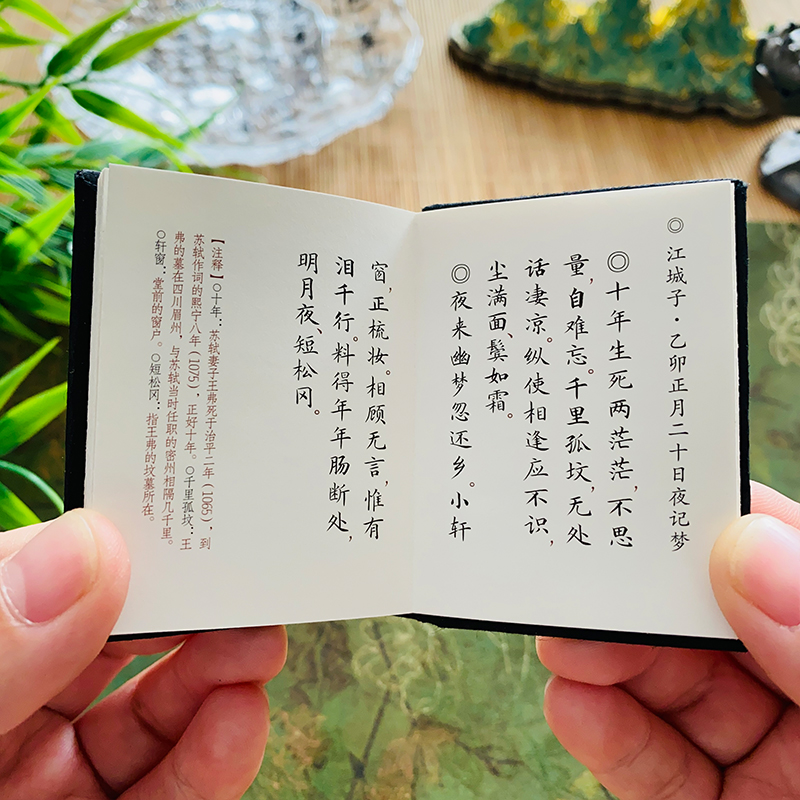 ◎江城子·乙卯正月二十日夜记梦
◎十年生死两茫茫，不思
量，自难忘。千里孤坟，无处
话凄凉。纵使相逢应不识，
尘满面、鬓如霜。
◎夜来幽梦忽还乡。小轩
窗，正梳妆。相顾无言，惟有
泪千行。料得年年肠断处，
明月夜、短松冈。
【注释】○十年：苏轼妻子王弗死于治平二年（1065），到
苏轼作词的熙宁八年（1075），正好十年。○千里孤坟：王
弗的墓在四川眉州，与苏轼当时任职的密州相隔几千里。
○轩窗：堂前的窗户。○短松冈：指王弗的坟墓所在。